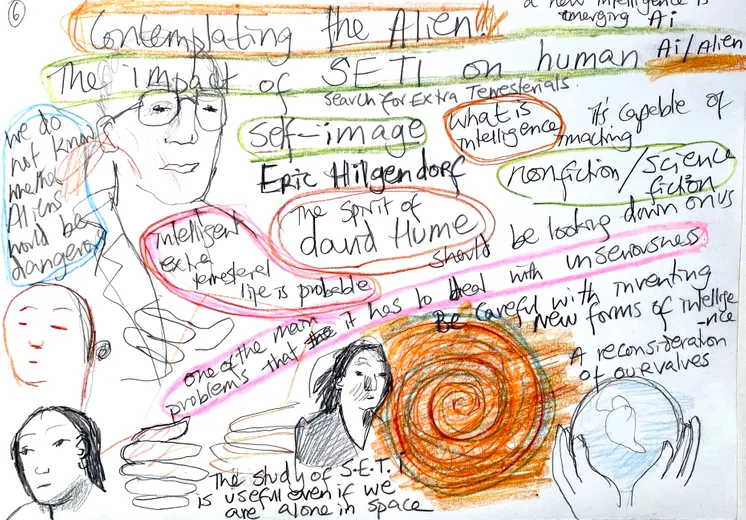 6
a new intelligence is
emerging Ai
Contemplating the Alien
The impact of SETI on human
Ai/Alien
search for Extra Terresterials.
self-image
Eric Hilgendorf
what is
intelligence
it's capable of
nonfiction/science
fiction
we do
not know
Aliens
would be
dangerous
the spirit of
david Hume
should be looking down on us
intelligent
extra
terresterel
life is probable
one of the main
problems that it has to deal with unseriousness
Be careful with inventing
New forms of intellige
-nce
A reconsideration
of our valves
The study of S.E.T.I
is usefull even if we
are alone in space